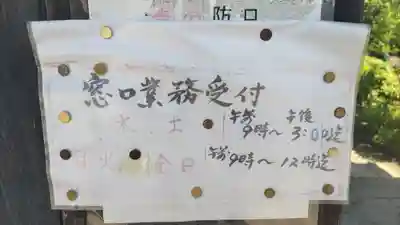 防
窓口業務受付
水 土 午前9時〜 午後3:00迄
日 金 午前9時〜12時迄